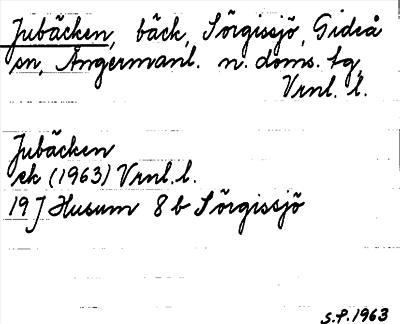 Jubäcken, bäck, Sörgissjö, Gideå
sn, Ångermanl. n. doms. tg,
Vrnl. l.
Jubäcken
ek (1963) Vrnl. l.
19 J Husum 8 b Sörgissjö
S.P. 1963